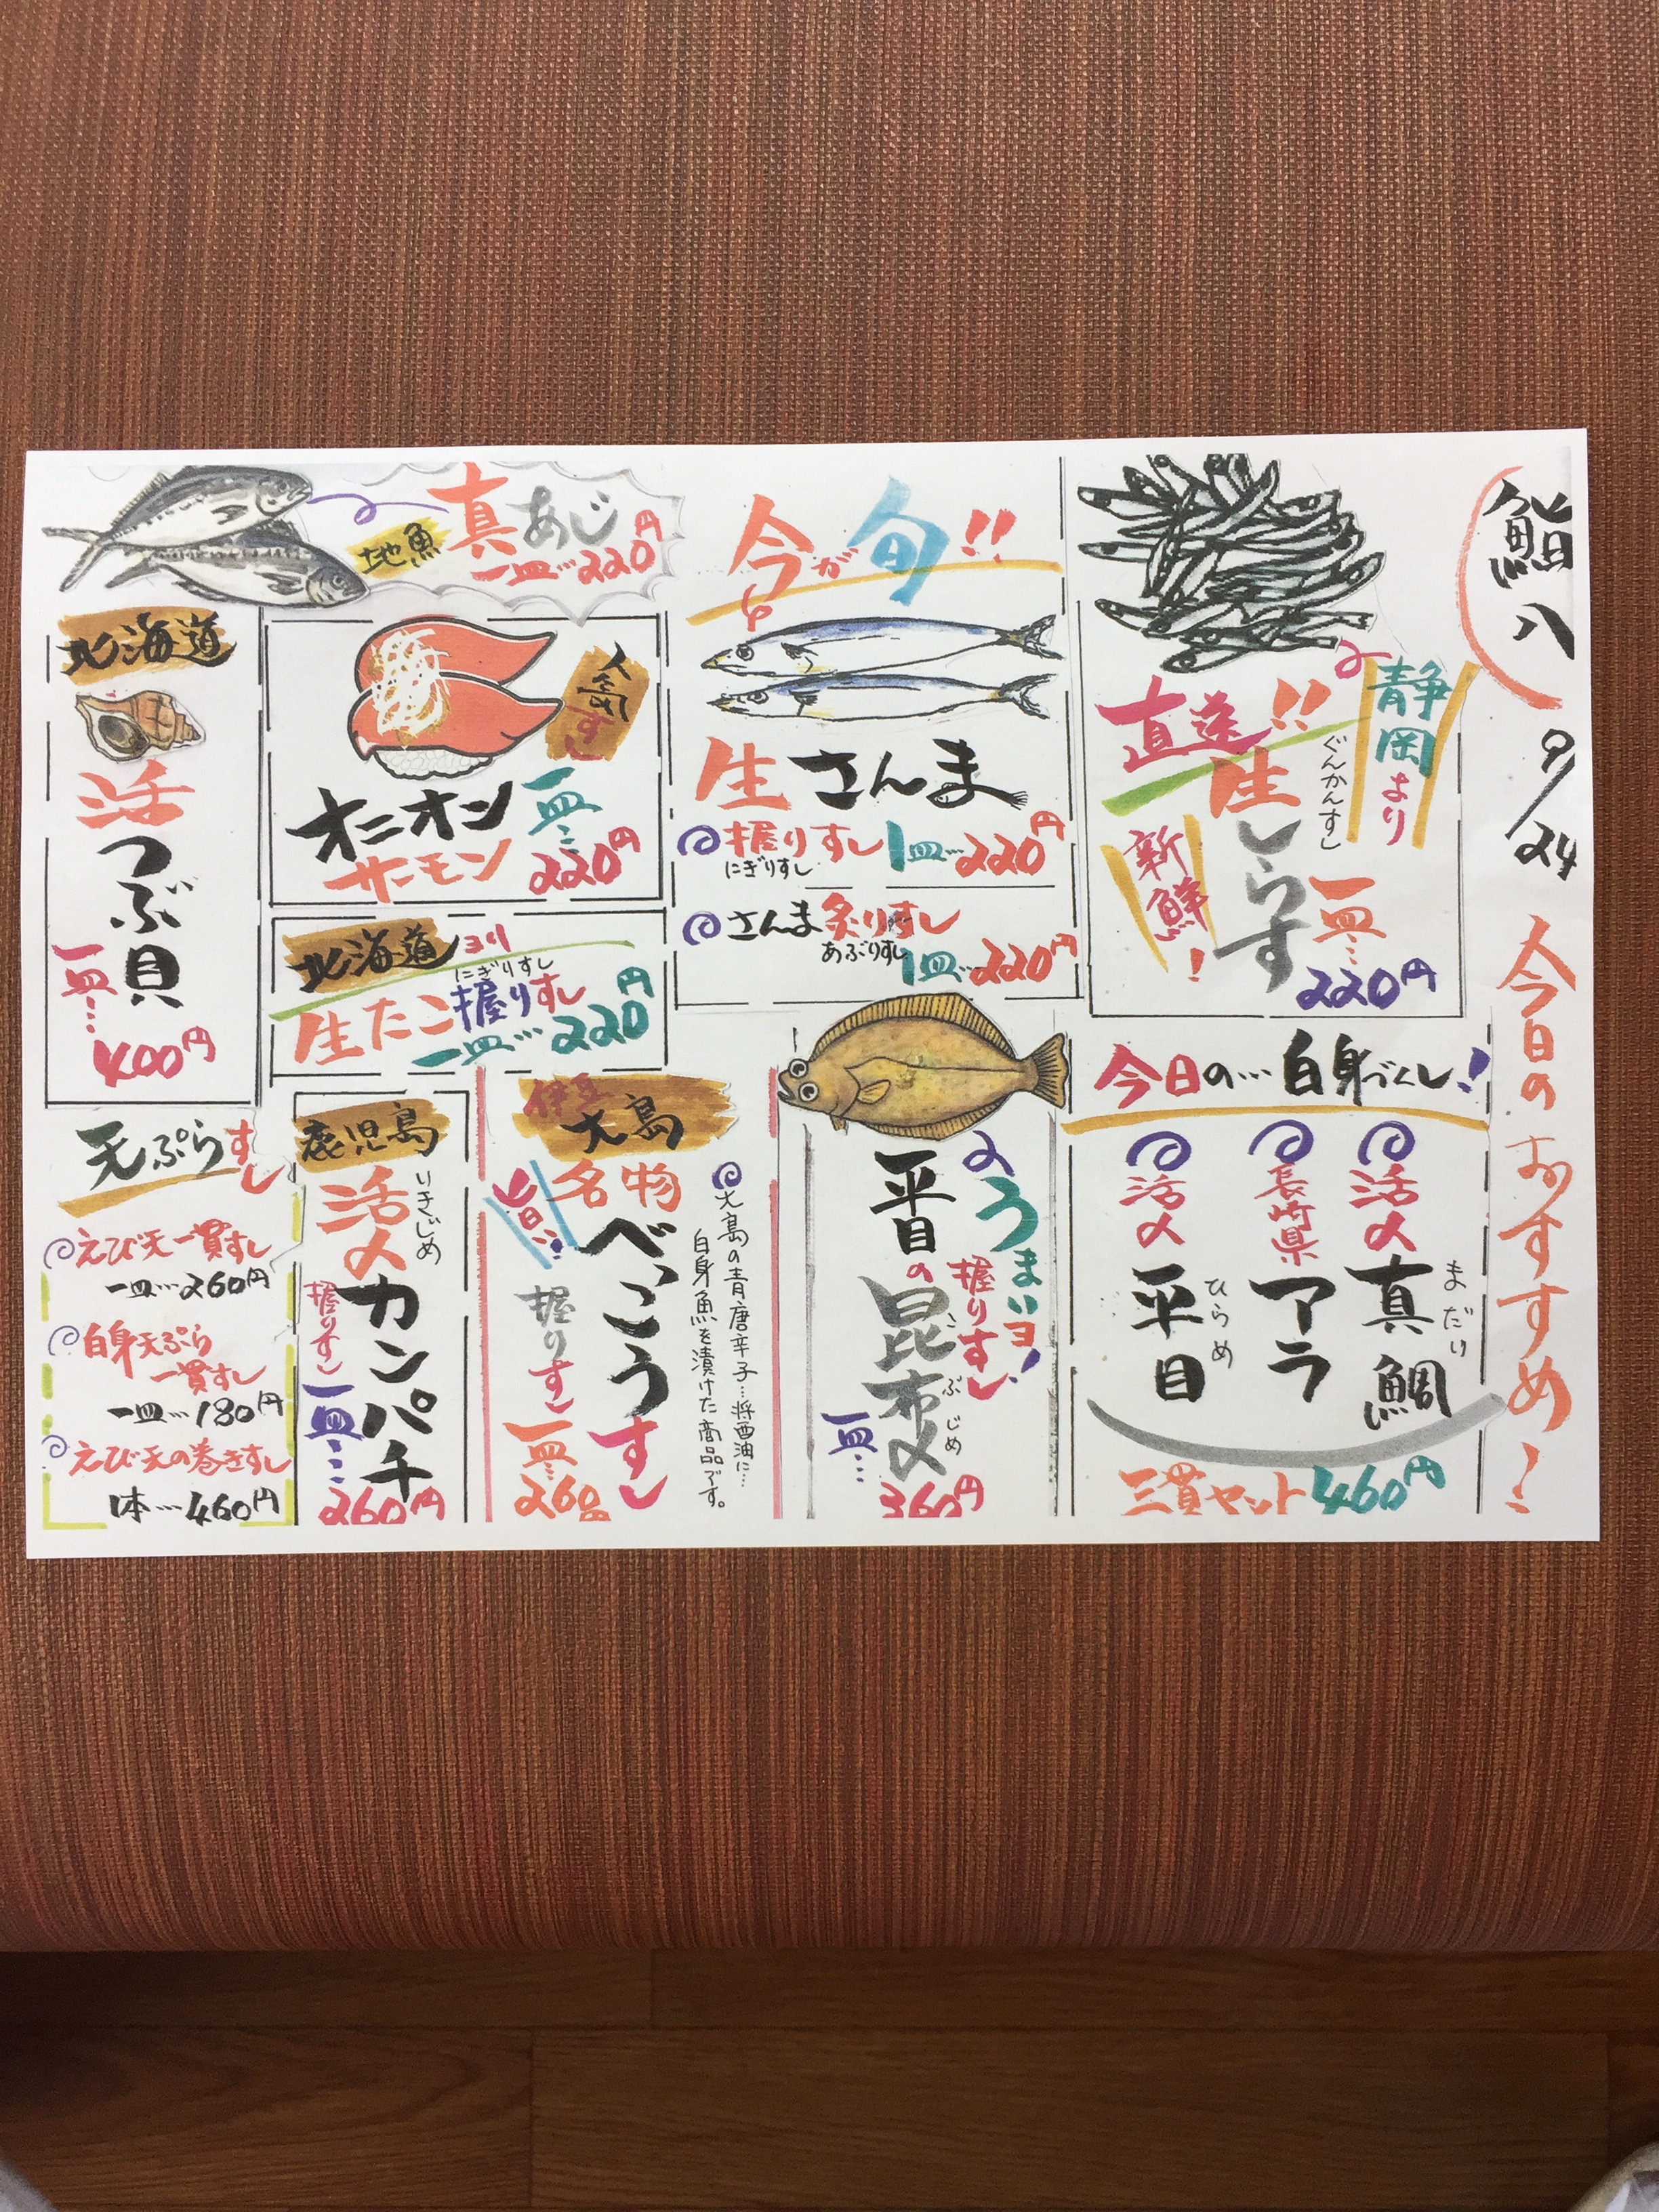 鮨八
9/24
今日のおすすめ!
静岡より
直送!!
生しらす
ぐんかんすし
新鮮!
一皿…
220円
今が旬!!
生さんま
握りすし 1皿…220円
にぎりすし
さんま炙りすし
あぶりすし
1皿…220円
地魚
真あじ
一皿…220円
人気すし
オニオン
サーモン
一皿…
220円
北海道より
にぎりすし
生たこ握りすし
一皿…220円
北海道
活つぶ貝
一皿…
400円
今日の…白身づくし!
活〆真鯛
まだい
長崎県アラ
活〆平目
ひらめ
三貫セット460円
うまいヨ!
握りすし
平目の昆布〆
こぶじめ
一皿…
360円
伊豆
大島
名物
べっこうすし
旨い!
握りすし
一皿…
260円
大島の青唐辛子…将酉油に…
白身魚を漬けた商品です。
鹿児島
活〆カンパチ
いきじめ
握りすし
一皿…
260円
天ぷらすし
えび天一貫すし
一皿…260円
白身天ぷら
一貫すし
一皿…180円
えび天の巻きすし
1本…460円